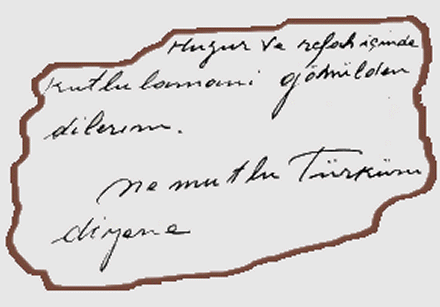 Huzur ve refah içinde
kutlulamanı gönülden
dilerim.
ne mutlu Türküm
diyene